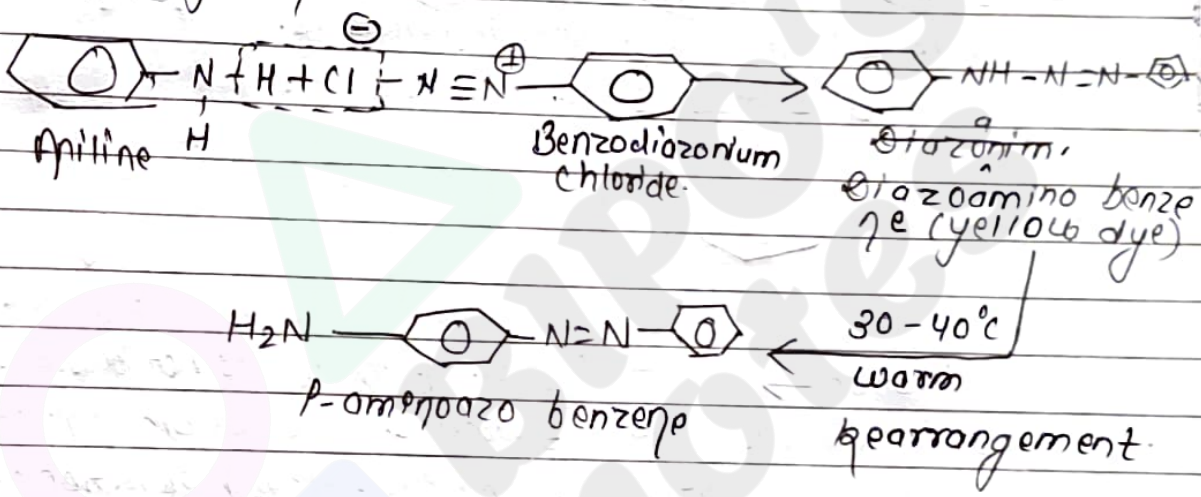 ⊖
N + H + Cl - N ≡ N⊕ → NH - N = N -
H
Aniline
Benzodiazonium
chloride.
Diazoamino benze
ne (yellow dye)
H2N N=N 30-40°C
warm
P-aminoazo benzene
Rearrangement.